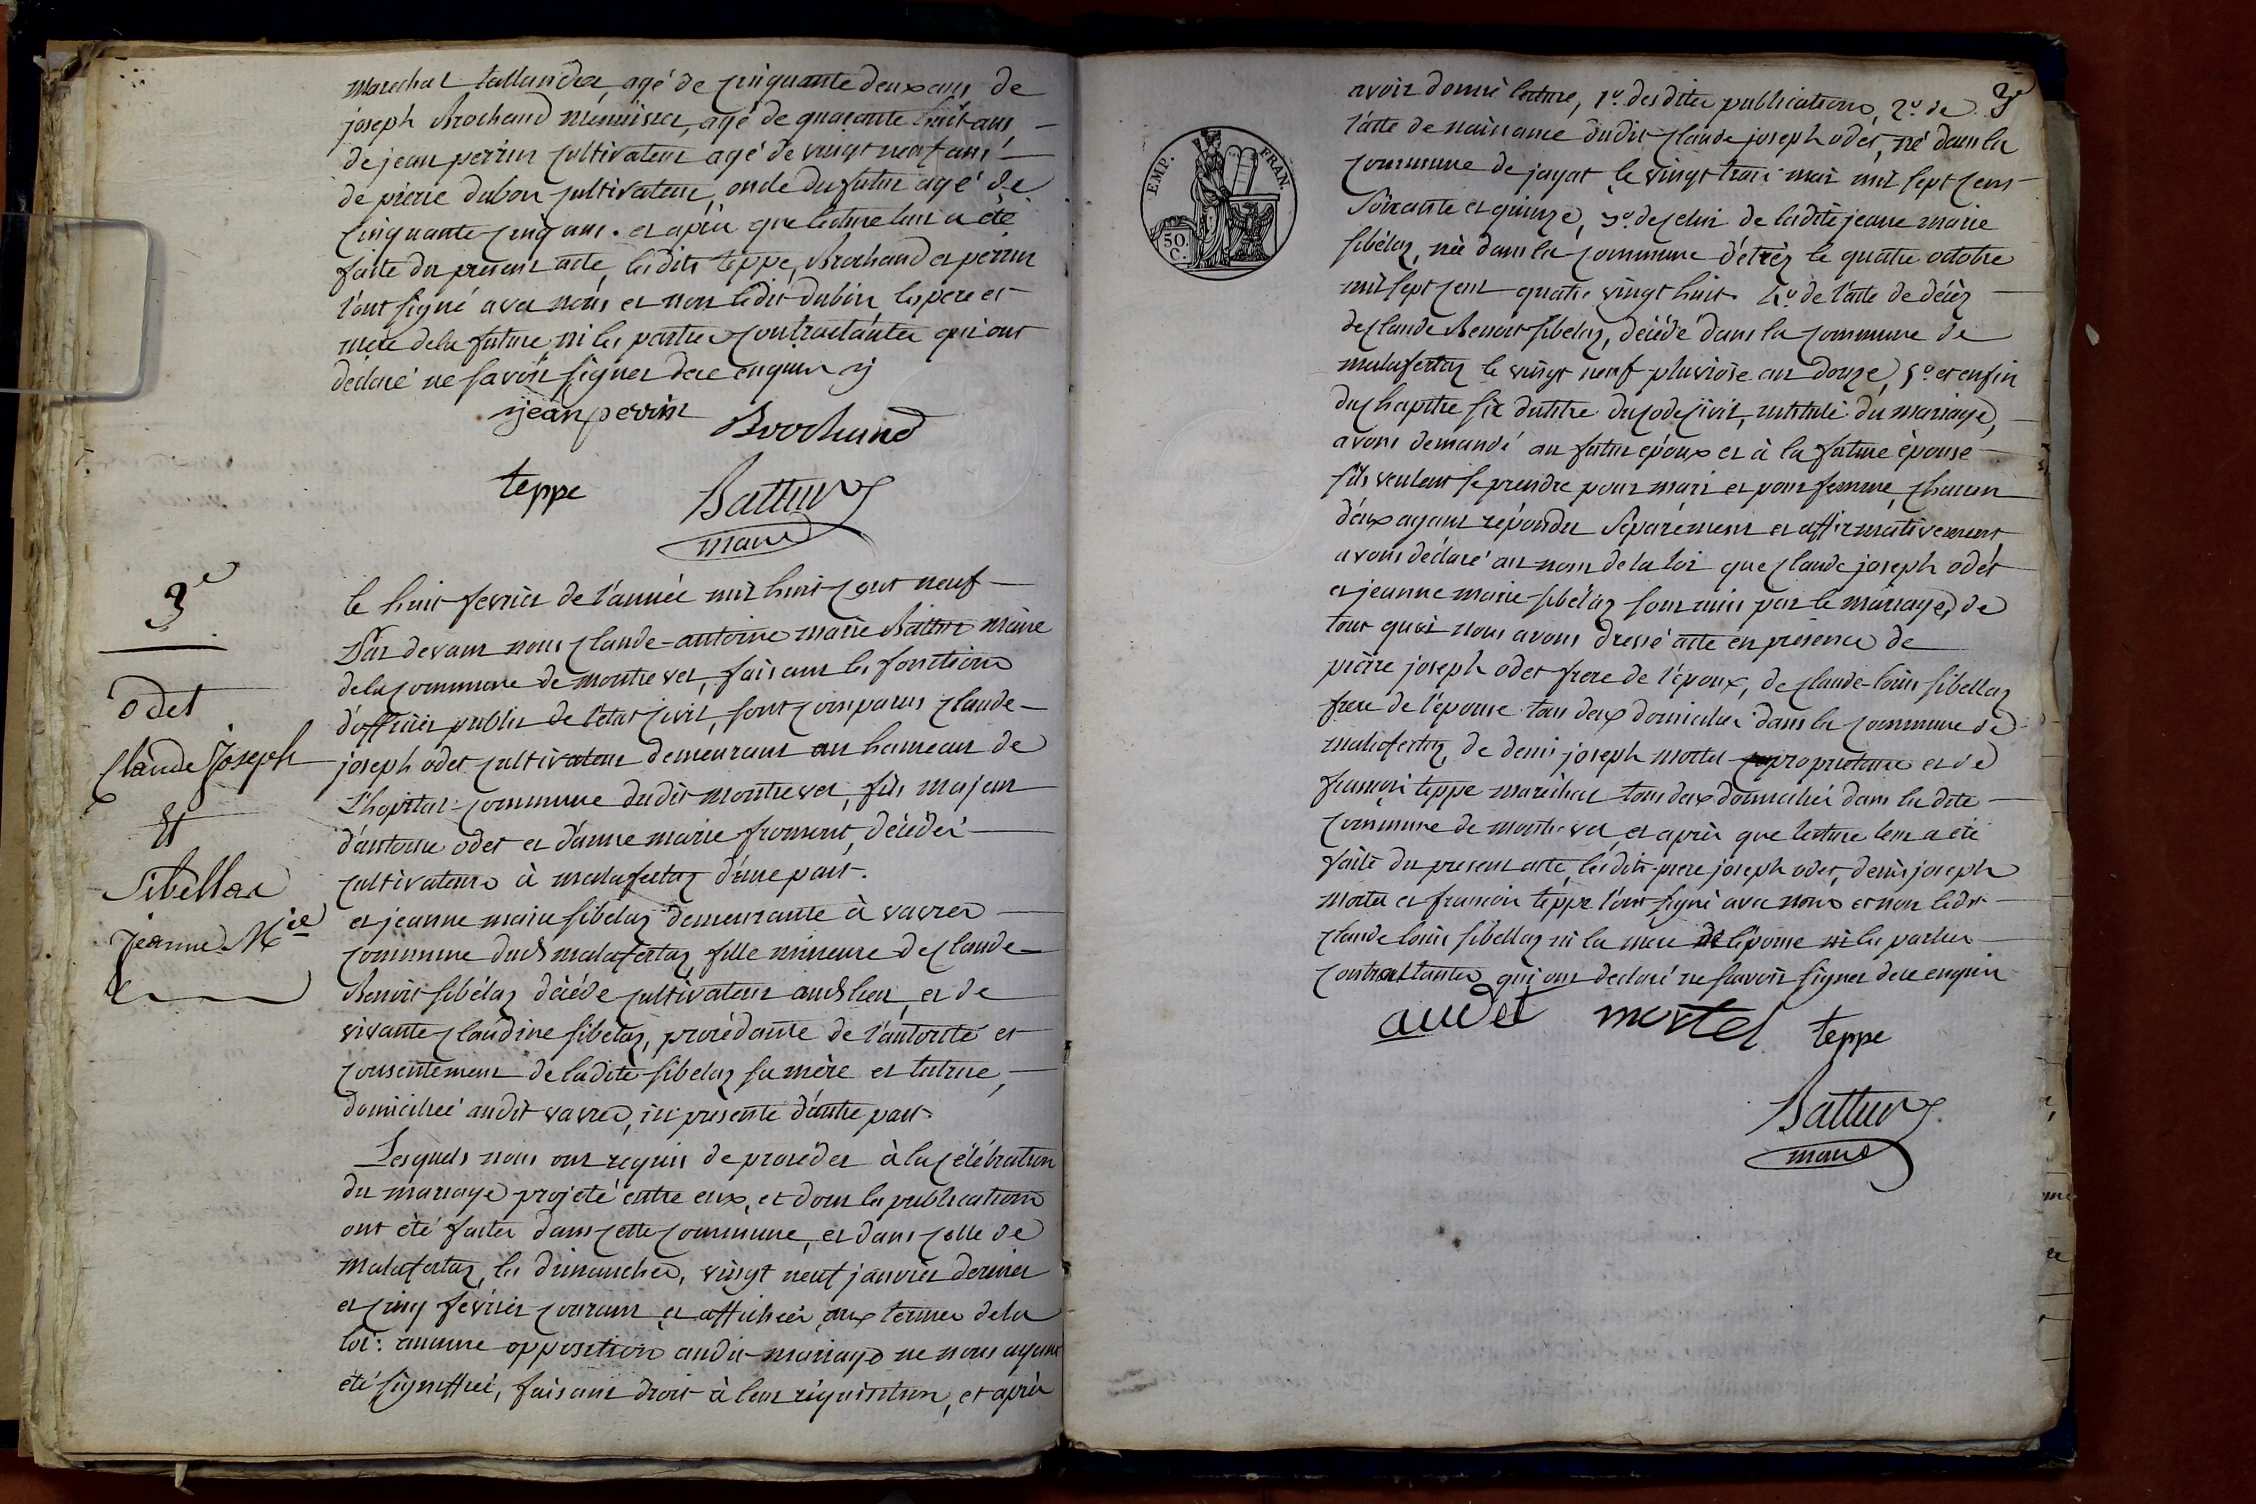 marechal tallandier, agé de cinquante deux ans de
joseph Brochand menuisier, agé de quarante huit ans,
de jean perrin cultivateur agé de vingt neuf ans
de pierre dubon cultivateur, oncle du futur agé de
cinquante cinq ans. et après que lecture leur a été
faite du present acte, lesdits teppe, Brochand et perrin
l'ont signé avec nous et non ledit dubon, les pere et
mere de la future ni les parties contractantes qui ont
déclaré ne savoir signer de ce enquis
jean perrin Brochand
teppe Battur
maire
3e
odet
Claude Joseph
Et
Sibellas
Jeanne Mie
le huit fevrier de l'année mil huit cent neuf
Par devant nous claude-antoine marie Battur maire
de la commune de montrevel, faisant les fonctions
d'officier public de l'etat civil, sont comparus claude-
joseph odet cultivateur demeurant au hameau de
L'hopital commune dudit montrevel, fils majeur
d'antoine odet et d'anne marie froment, décédés
cultivateurs à malafertaz d'une part.
et jeanne marie sibelaz demeurante à vavres
commune dud malafertaz, fille mineure de claude-
Benoit sibélaz décédé cultivateur aud lieu, et de
vivante claudine sibelaz, procédante de l'autorité et
consentement de ladite sibelaz sa mère et tutrice,
domiciliée audit vavres, ici presente d'autre part.
Lesquels nous ont requis de proséder à la célébration
du mariage projeté entre eux, et dont les publications
ont été faites dans cette commune, et dans celle de
Malafertaz, les dimanches, vingt neuf janvier dernier
et cinq février courant et affichées aux termes de la
loi: aucune opposition audit mariage ne nous ayant
été signiffiée, faisant droit à leur réquisition, et après
3e
EMP. FRAN.
50.
C.
avoir donné lecture, 1o. des dites publications, 2o. de
l'acte de naissance dudit claude joseph odet, né dans la
commune de jayat le vingt trois mai mil sept cent
soixante et quinze, 3o. de celui de ladite jeanne marie
sibélaz, née dans la commune d'étréz le quatre octobre
mil sept cent quatre vingt huit. 4o. de l'acte de décèz
de claude Benoit sibélaz, décédé dans la commune de
malafertaz le vingt neuf pluviose an douze, 5o. et enfin
du chapitre six du titre du code civil, intitulé du mariage,
avons demandé au futur époux et à la future épouse
s'ils veulent se prendre pour mari et pour femme, chacun
d'eux ayant répondu séparément et affirmativement
avons déclaré au nom de la loi que claude joseph odét
et jeanne marie sibélaz sont unis par le mariage, de
tout quoi nous avons dressé acte en présence de
pierre joseph odet frere de l'époux, de claude-louis sibellaz
frere de l'épouse tous deux domiciliés dans la commune de
malafertaz, de denis joseph mortel proprietaire et de
françois teppe maréchal tous deux domiciliés dans la dite
commune de montrevel, et après que lecture leur a été
faite du present acte, lesdits pierre joseph odet, denis joseph
mortel et francois teppe l'ont signé avec nous et non ledit
claude louis sibellaz ni la mere de l'épouse ni les parties
contractantes qui ont declaré ne savoir signer de ce enquis
audet mortel teppe
Battur
maire